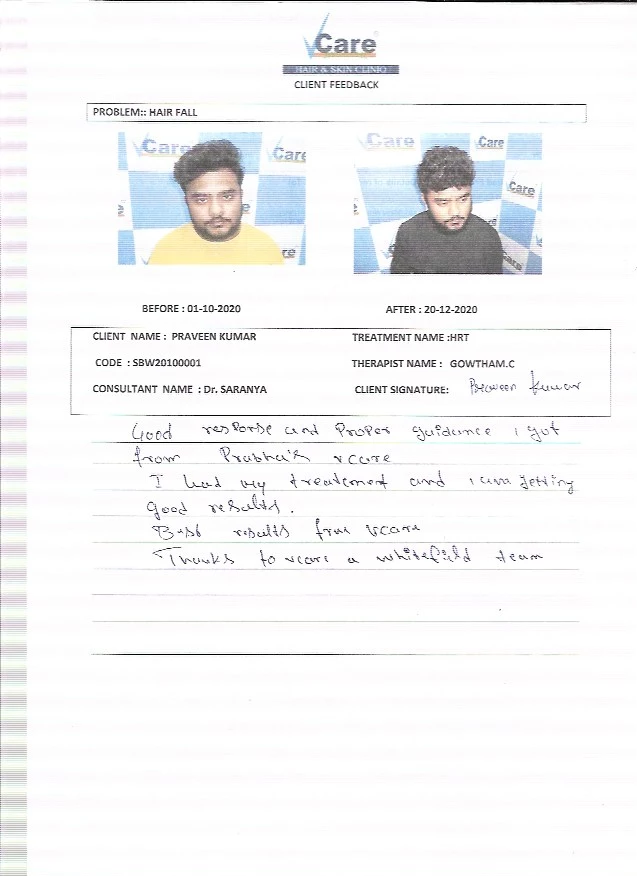 VCare
HAIR & SKIN CLINIC
CLIENT FEEDBACK
PROBLEM:: HAIR FALL
Care Care
re
Care Care
Care
Care
BEFORE : 01-10-2020 AFTER : 20-12-2020
CLIENT NAME : PRAVEEN KUMAR TREATMENT NAME :HRT
CODE : SBW20100001 THERAPIST NAME : GOWTHAM.C
CONSULTANT NAME : Dr. SARANYA CLIENT SIGNATURE: Praveen Kumar
Good response and Proper guidance i got
from Prabha's vcare
I had my treatment and i am getting
good results.
Best results from vcare
Thanks to vcare a whitefield team